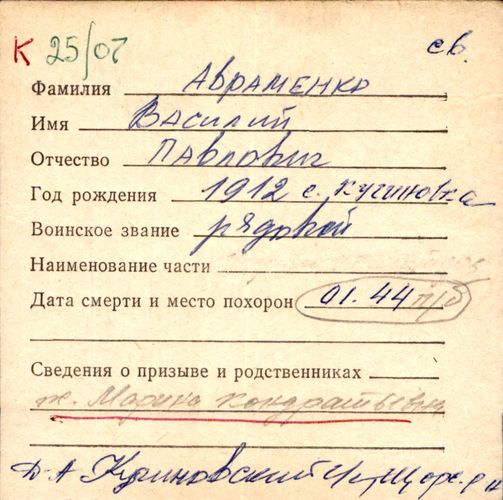 К 25/07
св.
Фамилия Авраменко
Имя Василий
Отчество Павлович
Год рождения 1912 с. Кучиновка
Воинское звание рядовой
Наименование части
Дата смерти и место похорон 01.44 п/б
Сведения о призыве и родственниках
ж. Марина Кондратьевна